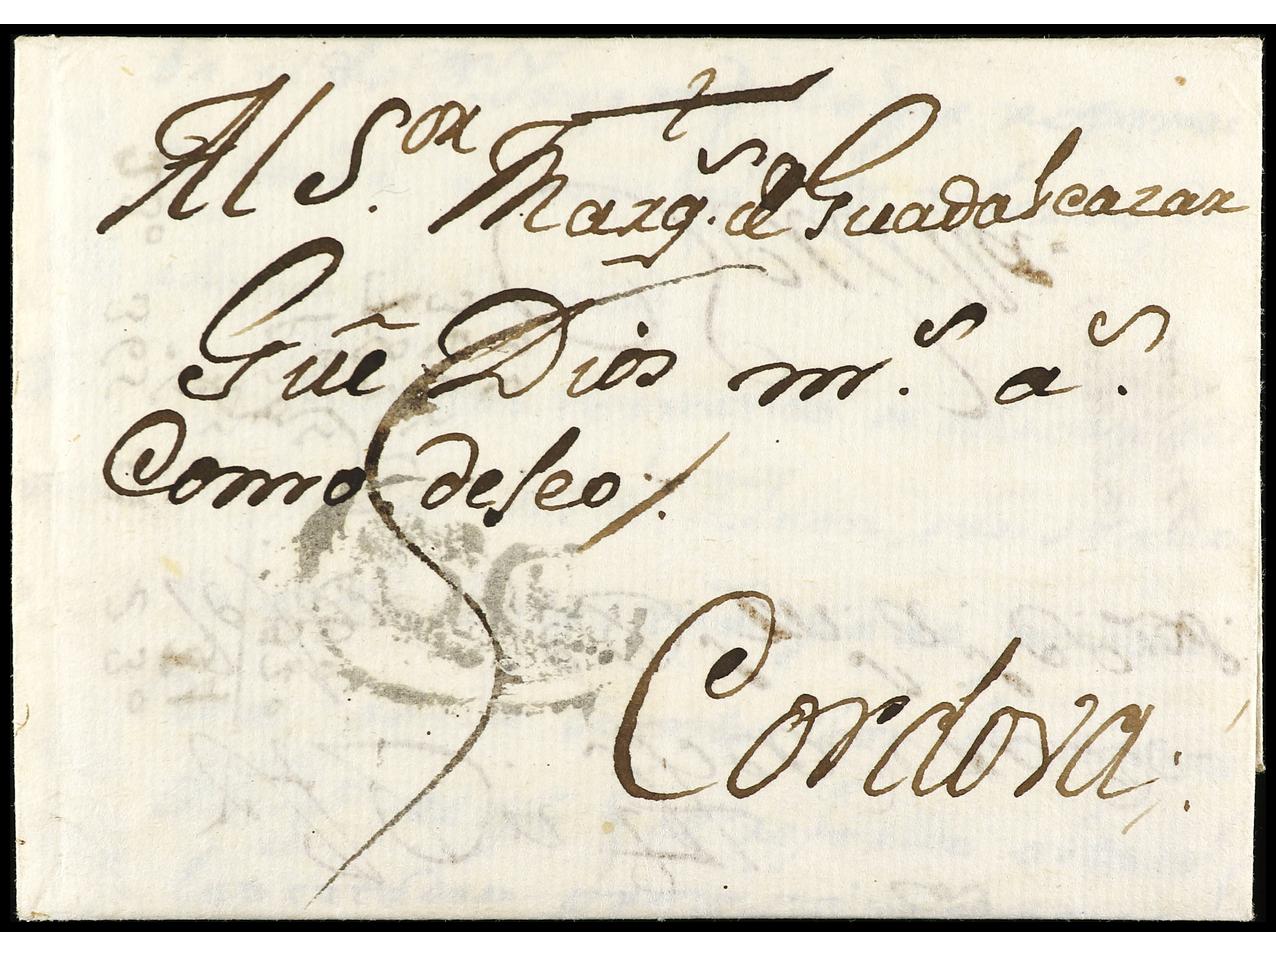 Al S.or Marq.s de Guadalcazar
Gūe Dios m.s a.s
Como deseo.
Cordova.